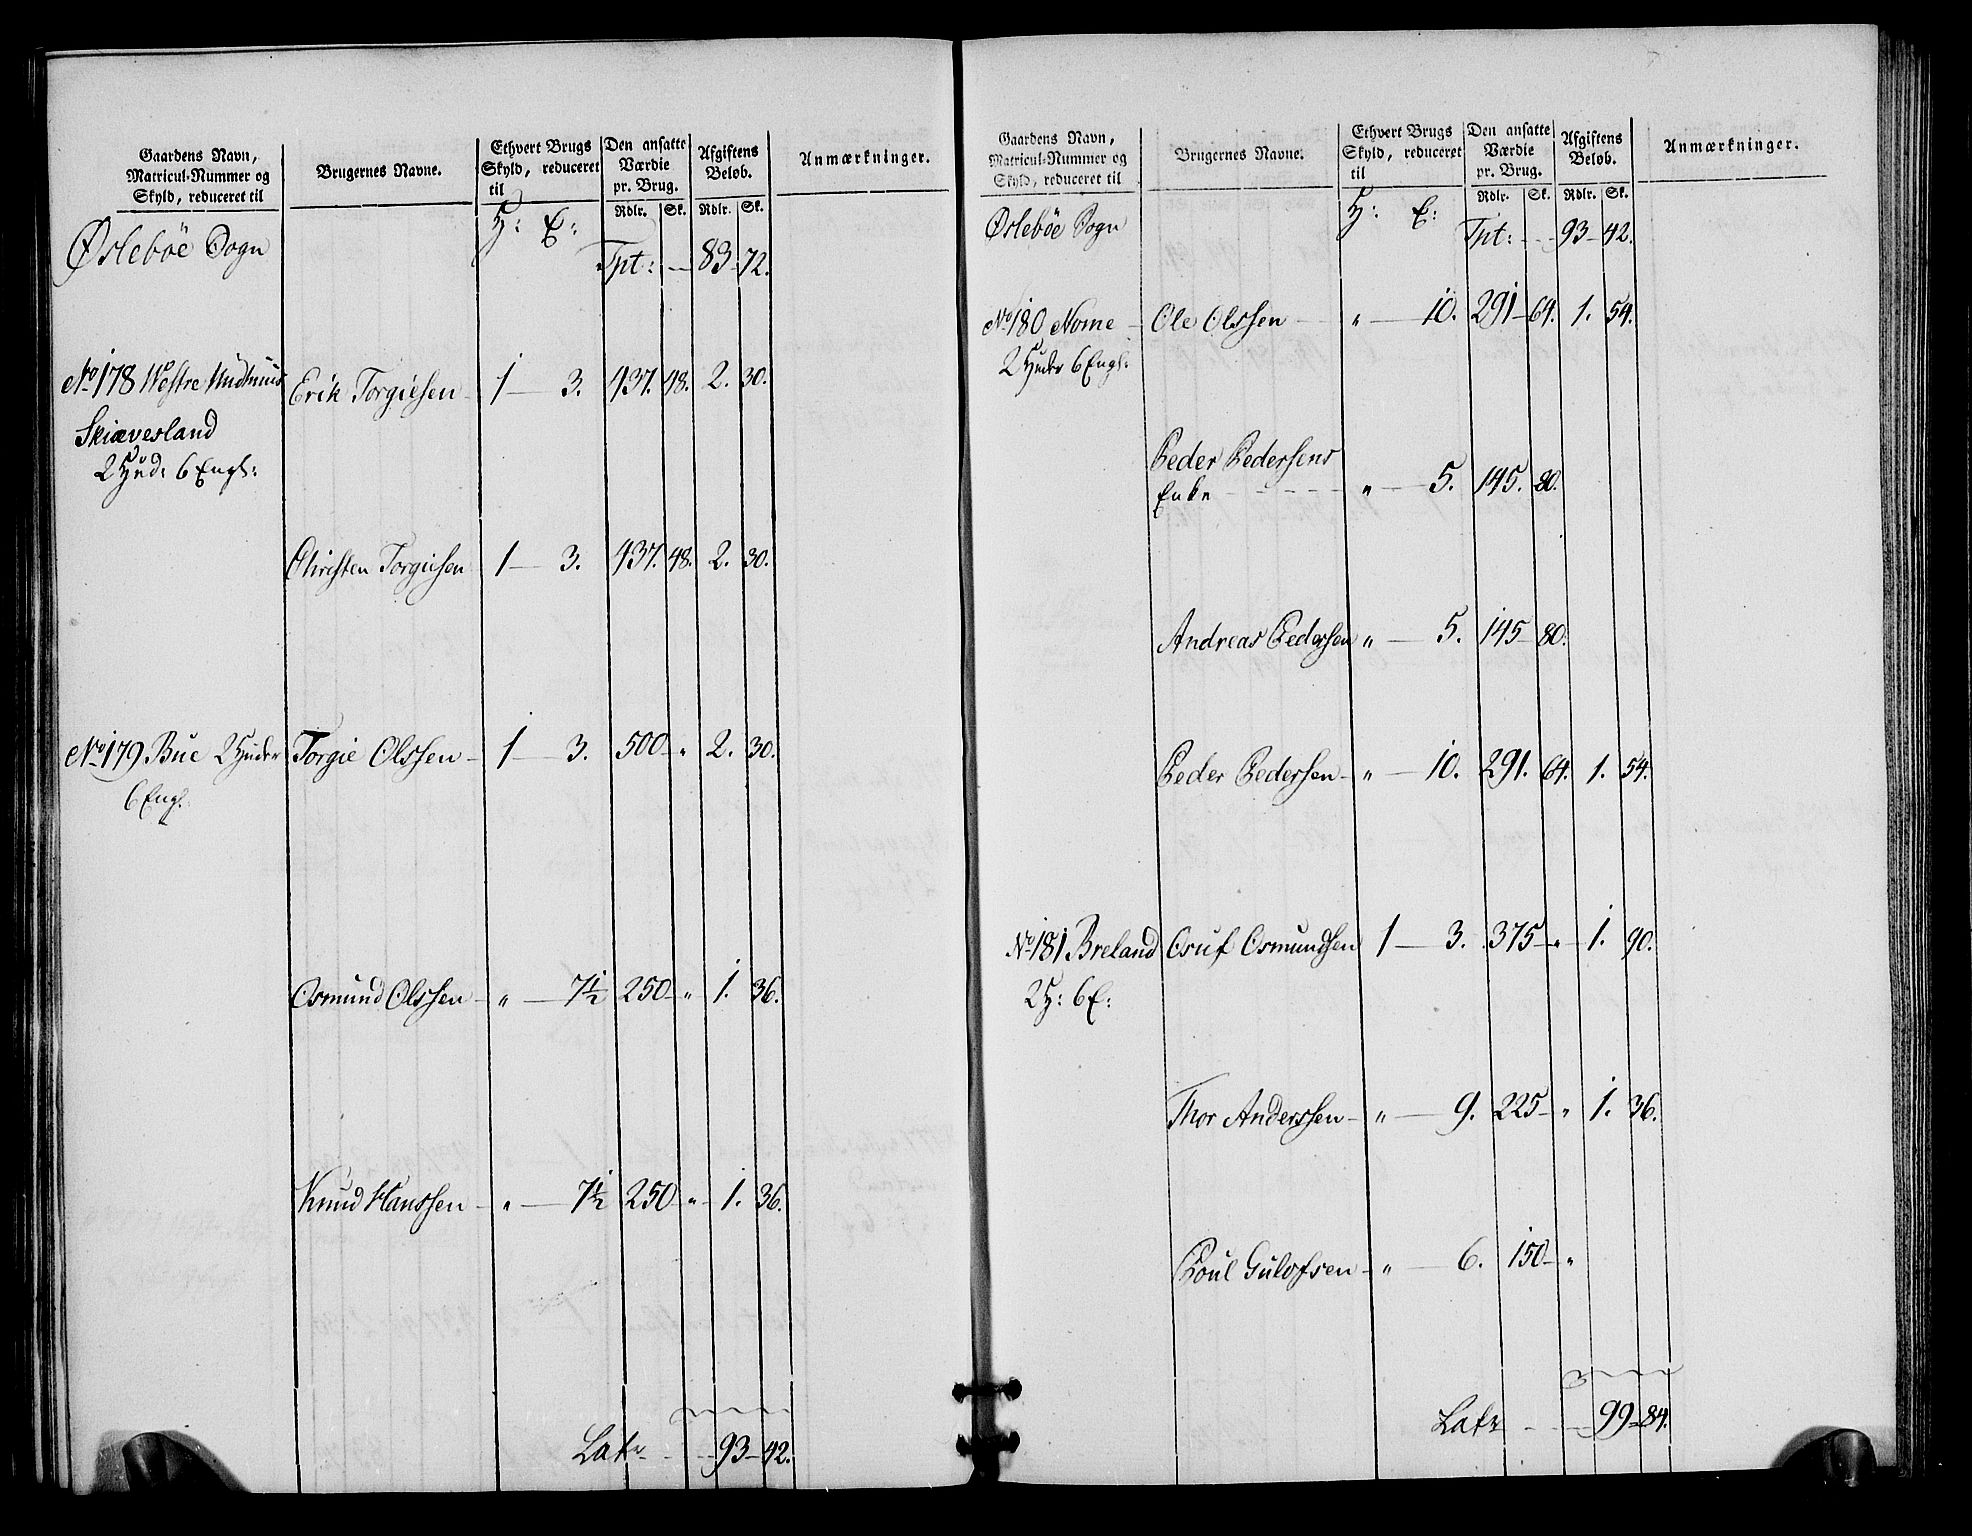 Gaardens Navn, Matricul-Nummer og Skyld, reduceret til | Brugernes Navne. | Ethvert Brugs Skyld, reduceret til | Den ansatte Værdie pr. Brug. | Afgiftens Beløb. | Anmærkninger.
H: E: | Rdlr. Sk. | Rdlr. Sk.
Øslebøe Sogn
Tpt: — 83 — 72.
No 178 Westre Skiævesland 2 Hud: 6 Engl: | Erik Torgiesen | 1 — 3. | 437. 48. | 2. 30.
Christen Torgiesen | 1 — 3. | 437. 48. | 2. 30.
No 179 Bue 2 Huder 6 Engl: | Torgie Olssen | 1 — 3. | 500 — „ | 2. 30.
Osmund Olssen | „ — 7½ | 250 — „ | 1. 36.
Knud Hanssen | „ — 7½ | 250 — „ | 1. 36.
Later — 93 — 42.
Gaardens Navn, Matricul-Nummer og Skyld, reduceret til | Brugernes Navne. | Ethvert Brugs Skyld, reduceret til | Den ansatte Værdie pr. Brug. | Afgiftens Beløb. | Anmærkninger.
H: E: | Rdlr. Sk. | Rdlr. Sk.
Øslebøe Sogn
Tpt: — 93 — 42.
No 180 Nome 2 Huder 6 Engl: | Ole Olssen | „ — 10. | 291 — 64. | 1. 54.
Peder Pedersens Enke | „ — 5. | 145. 80.
Andreas Pedersen | „ — 5. | 145 — 80.
Peder Pedersen | „ — 10. | 291. 64. | 1. 54.
No 181 Breland 2 H: 6 E: | Osuf Osmundsen | 1 — 3. | 375 — „ | 1. 90.
Thor Anderssen | „ — 9. | 225 — „ | 1. 36.
Poul Gulofsen | „ — 6. | 150 — „
Later — 99 — 84.